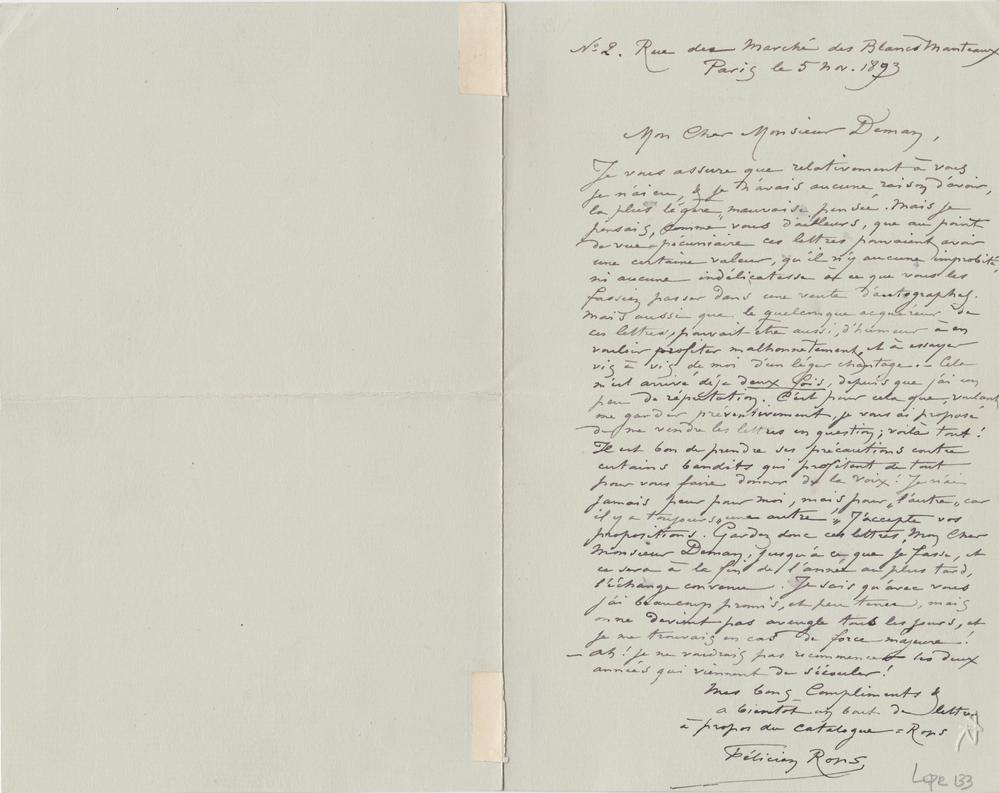 No 2. Rue des Marché des Blancs Manteaux
Paris le 5 Nov. 1893
Mon Cher Monsieur Deman,
Je vous assure que relativement à vous
je n'ai eu, & je n'avais aucune raison d'avoir,
la plus légère mauvaise pensée. Mais je
pensais, comme vous d'ailleurs, que au point
de vue pécuniaire ces lettres pouvaient avoir
une certaine valeur, qu'il n'y aucune improbité
ni aucune indélicatesse à ce que vous les
fassiez passer dans une vente d'autographes.
Mais aussi que le quelconque acquéreur de
ces lettres, pouvait être aussi, d'humeur à en
vouloir profiter malhonnêtement, et à essayer
vis à vis de moi d'un léger chantage. – Cela
m'est arrivé déja deux fois, depuis que j'ai un
peu de réputation. C'est pour cela que, voulant
me garder préventivement, je vous ai proposé
de me vendre les lettres en question; voilà tout!
Il est bon de prendre ses précautions contre
certains bandits qui profitent de tout
pour vous faire donner de la voix! Je n'ai
jamais peur pour moi, mais pour „l'autre„ car
il y a toujours „une autre„ J'accepte vos
propositions. Gardez donc ces lettres, Mon Cher
Monsieur Deman, jusqu'à ce que je fasse, et
ce sera à la fin de l'année au plus tard,
l'échange convenu. Je sais qu'avec vous
j'ai beaucoup promis, et peu tenu, mais
on ne devient pas aveugle tous les jours, et
je me trouvais en cas de force majeure!
– Ah! je ne voudrais pas recommencer les deux
années qui viennent de s'écouler!
Mes bons Compliments &
a bientot un bout de lettre
à propos du catalogue = Rops
Félicien Rops,
LepR 133